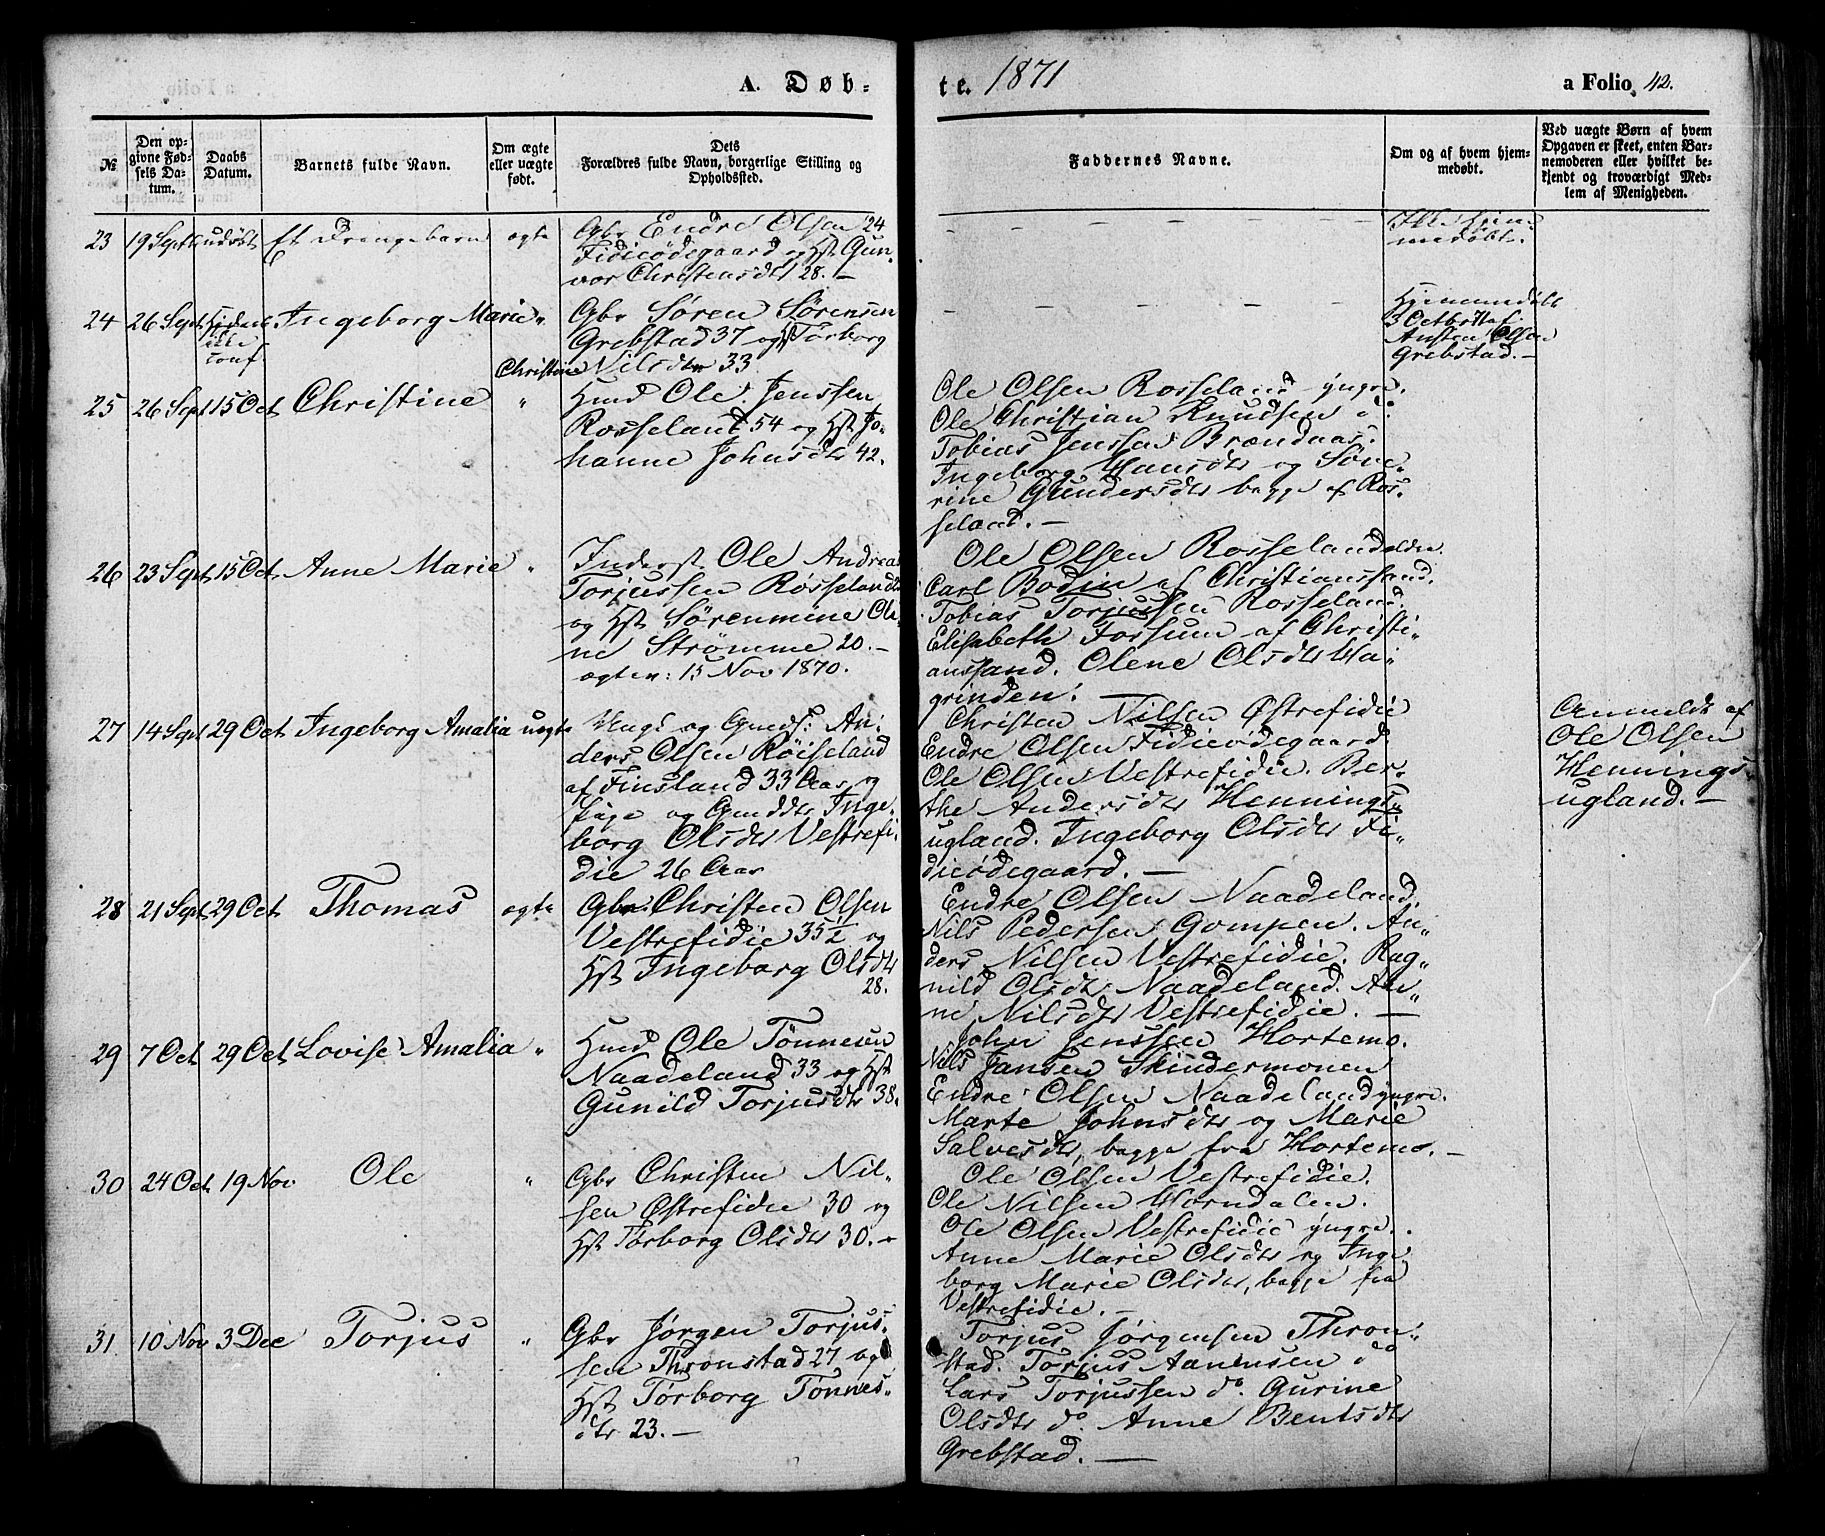 A. Døb-
te. 1871
a Folio 42.
№
Den op-
givne Fød-
sels Da-
tum.
Daabs
Datum.
Barnets fulde Navn.
Om ægte
eller uægte
født.
Dets
Forældres fulde Navn, borgerlige Stilling og
Opholdssted.
Faddernes Navne.
Om og af hvem hjem-
medøbt.
Ved uægte Børn af hvem
Opgaven er skeet, enten Bar-
nemoderen eller hvilket be-
kjendt og troværdigt Med-
lem af Menigheden.
23 19 Sept udøbt Et Drengebarn ægte
Gbr Endre Olsen 24
Fidieødegaard og Hst Gun-
vor Christensdtr 28. —
Ikke hjem-
medøbt.
24 26 Sept
ikke
conf
Ingeborg Marie "
Christine
Gbr Søren Sørensen
Grebstad 37 og Hst Torborg
Nilsdtr 33
Hjemmedøbt
3 Octbr 71 af
Austen Olsen
Grebstad. —
25 26 Sept 15 Oct Christine "
Hmd Ole Jenssen
Rosseland 54 og Hst Jo-
hanne Johnsdtr 42.
Ole Olsen Rosseland yngre.
Ole Christian Knudsen do.
Tobias Jenssen Brændaas.
Ingeborg Hansdtr og Søve-
rine Gundersdtr begge af Ros-
seland. —
26 23 Sept 15 Oct Anne Marie "
Inderst Ole Andreas
Torjussen Rosseland
og Hst Sørenmine Oli-
ne Strømme 20. —
ægtev: 15 Nov 1870.
Ole Olsen Rosseland ældre.
Carl Bodin af Christianssand.
Tobias Torjussen Rosseland.
Elisabeth Forsum af Christi-
anssand. Olene Olsdtr Ha-
grinden. —
27 14 Sept 29 Oct Ingeborg Amalia uægte
Ungk og Gmds: An-
ders Olsen Røiseland
af Finsland 33 Aar og
Pige og Gmddtr Inge-
borg Olsdtr Vestrefi-
die 26 Aar
Christen Nilsen Østrefidie
Endre Olsen Fidieødegaard.
Ole Olsen Vestrefidie. Ber-
the Andersdtr Hennings-
ugland. Ingeborg Olsdtr Fi-
dieødegaard. —
Anmeldt af
Ole Olsen
Hennings-
ugland. —
28 21 Sept 29 Oct Thomas ægte
Gbr Christen Olsen
Vestrefidie 35½ og
Hst Ingeborg Olsdtr
28.
Endre Olsen Naadeland.
Nils Pedersen Gompen. An-
ders Nilsen Vestrefidie. Rag-
nild Olsdtr Naadeland. An-
ne Nilsdtr Vestrefidie. —
29 7 Oct 29 Oct Lovise Amalia "
Hmd Ole Tønnesen
Naadeland 33 og Hst
Gunild Torjusdtr 38.
John Jenssen Hortemo.
Nils Jansen Skindermonen
Endre Olsen Naadeland yngre.
Marte Johnsdtr og Marie
Salvesdtr, begge fra Hortemo. —
30 24 Oct 19 Nov Ole "
Gbr Christen Nil-
sen Østrefidie 30 og
Hst Torborg Olsdtr 30. —
Ole Olsen Vestrefidie.
Ole Nilsen Horndalen.
Ole Olsen Vestrefidie yngre.
Anne Marie Olsdtr og Inge-
borg Marie Olsdtr, begge fra
Vestrefidie. —
31. 10 Nov 3 Dec Torjus "
Gbr Jørgen Torjus-
sen Thronstad 27 og
Hst Torborg Tønnes-
dtr 23. —
Torjus Jørgensen Thron-
stad. Torjus Aanensen do
Lars Torjussen do. Gurine
Olsdtr do. Anne Bentsdtr
Grebstad. —